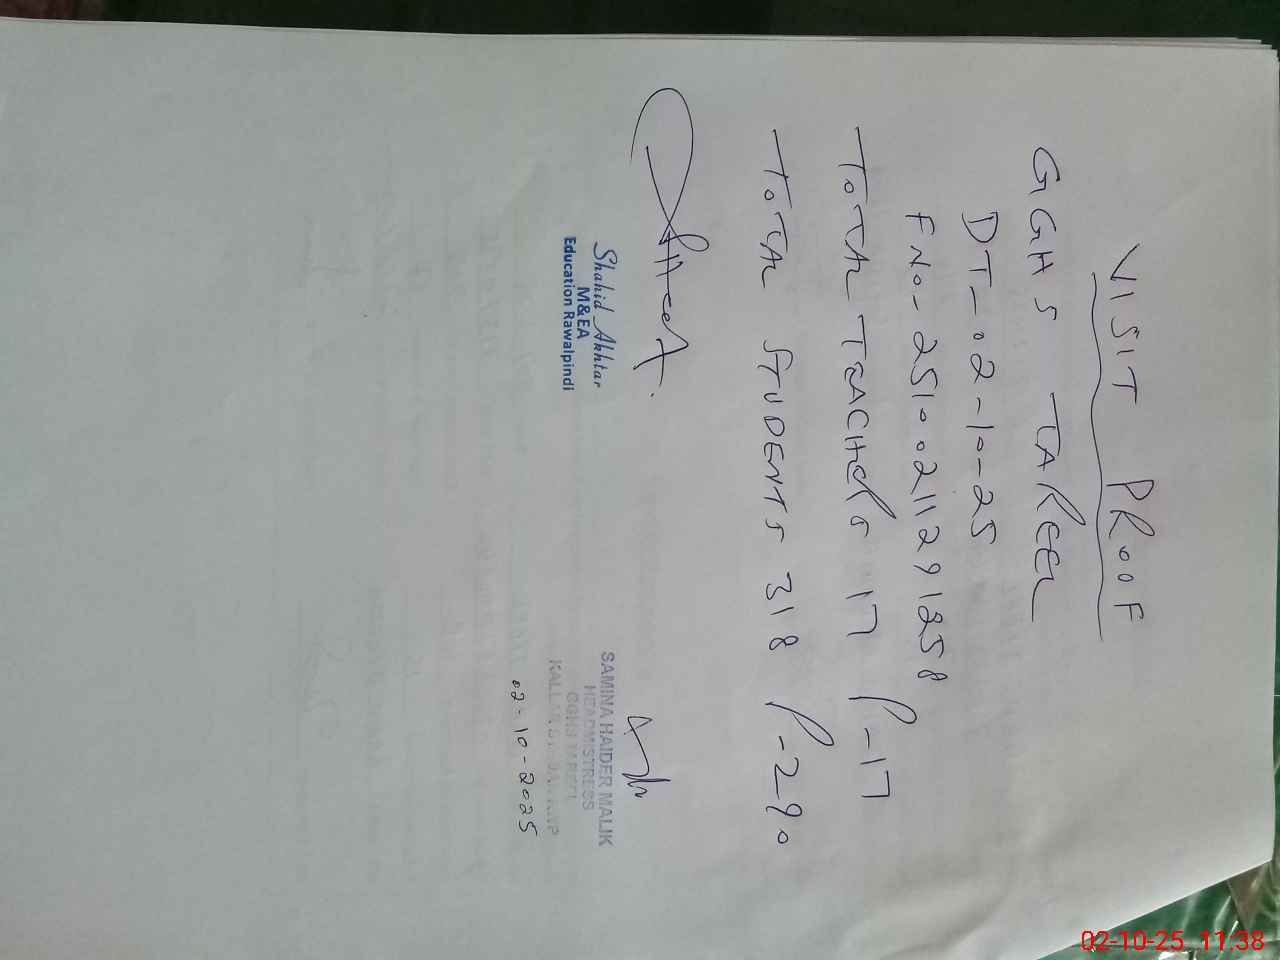 VISIT PROOF
GGHS TAREEL
DT-02-10-25
FNo-2510021129 1258
TOTAL TEACHERS 17 P-17
TOTAL STUDENTS 318 P-290
Shahid Akhtar
M&EA
Education Rawalpindi
SAMINA HAIDER MALIK
HEADMISTRESS
GGHS TAREEL
02-10-2025
02-10-25 11:38